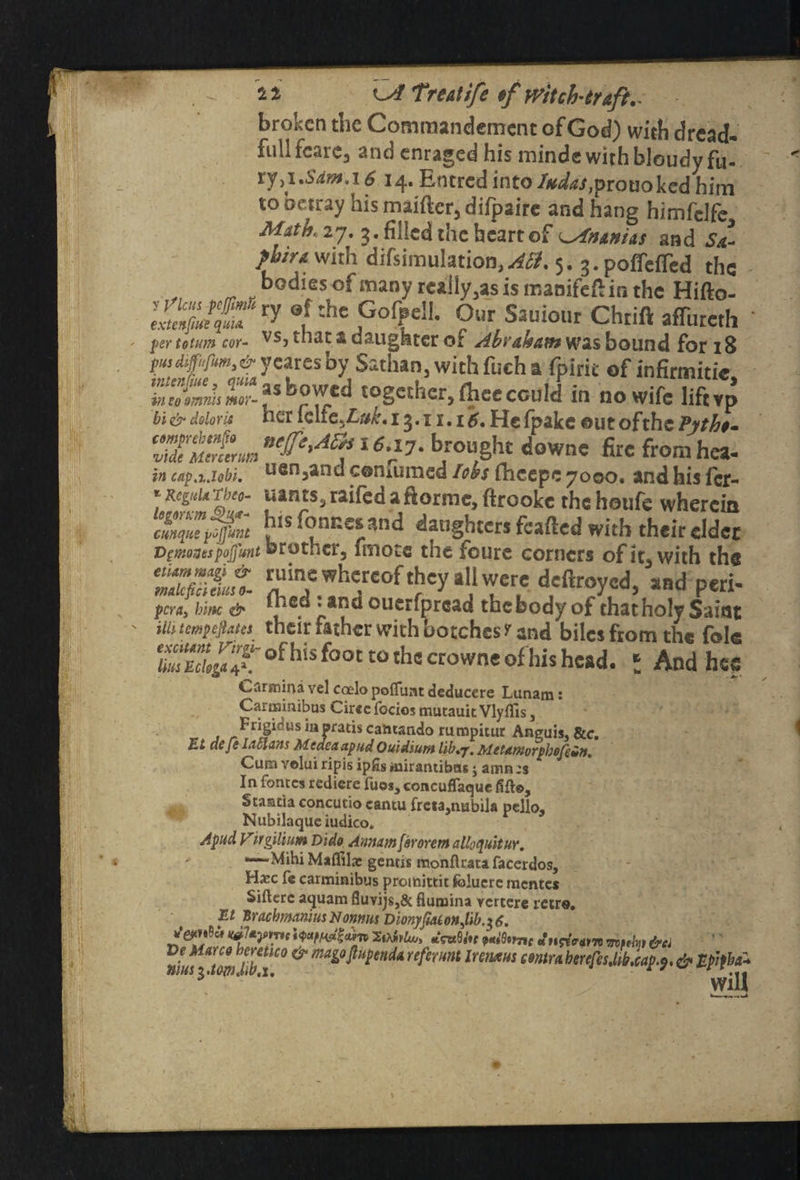 22 A Treatise of Witch-craft.
broken the Commandement of God) with dread-
full feare, and enraged his minde with bloudy fu-
ry, 1.Sam.16 14. Entred into Iudas, prouoked him
to betray his maister, dispaire and hang himselfe,
Math. 27. 3. filled the heart of Ananias and Sa-
phira with dissimulation, Act. 5. 3. possessed the
bodies of many really, as is manifest in the Histo-
ry of the Gospell. Our Sauiour Christ assureth
vs, that a daughter of Abraham was bound for 18
yeares by Sathan, with such a spirit of infirmitie,
as bowed together, shee could in no wise lift vp
her selfe, Luk. 13.11.16. He spake out of the Pytho-
nesse, Acts 16.17. brought downe fire from hea-
uen, and consumed Iobs sheepe 7000. and his ser-
uants, raised a storme, strooke the house wherein
his sonnes and daughters feasted with their elder
brother, smote the foure corners of it, with the
ruine whereof they all were destroyed, and peri-
shed : and ouerspread the body of that holy Saint
their father with botches y and biles from the sole
of his foot to the crowne of his head. z And hee
y Vlcus pessimũ
extensiue quia
per totum cor-
pus diffusum, &
intensiue, quia
in eo omnis mor-
bi & doloris
comprehensio
vide Mercerum
in cap.2.Iobi.
z Regula Theo-
logorum Quæ-
cunque possunt
Demones possunt
etiam magi &
malefici eius o-
pera, hinc &
illi tempestates
excitant Virgi-
lius Ecloga 4ª.
Carmina vel cœlo possunt deducere Lunam :
Carminibus Circe socios mutauit Vlyssis,
Frigidus in pratis cantando rumpitur Anguis, &c.
Et de se Iactans Medea apud Ouidium lib.7. Metamorphoseωn.
Cum volui ripis ipsis mirantibus ; amnes
In fontes rediere suos, concussaque sisto,
Stantia concutio cantu freta, nubila pello,
Nubilaque iudico.
Apud Virgilium Dido Annam sororem alloquitur.
—Mihi Massilæ gentis monstrata sacerdos,
Hæc se carminibus promittit soluere mentes
Sistere aquam fluvijs, & flumina vertere retro.
Et Brachmanius Nonnus Dionysiacon, lib.36.
De Marco heretico & mago stupenda referunt Irenæus contra hereses.lib.cap.9. & Epipha-
nius 3.tom.lib.1.
will